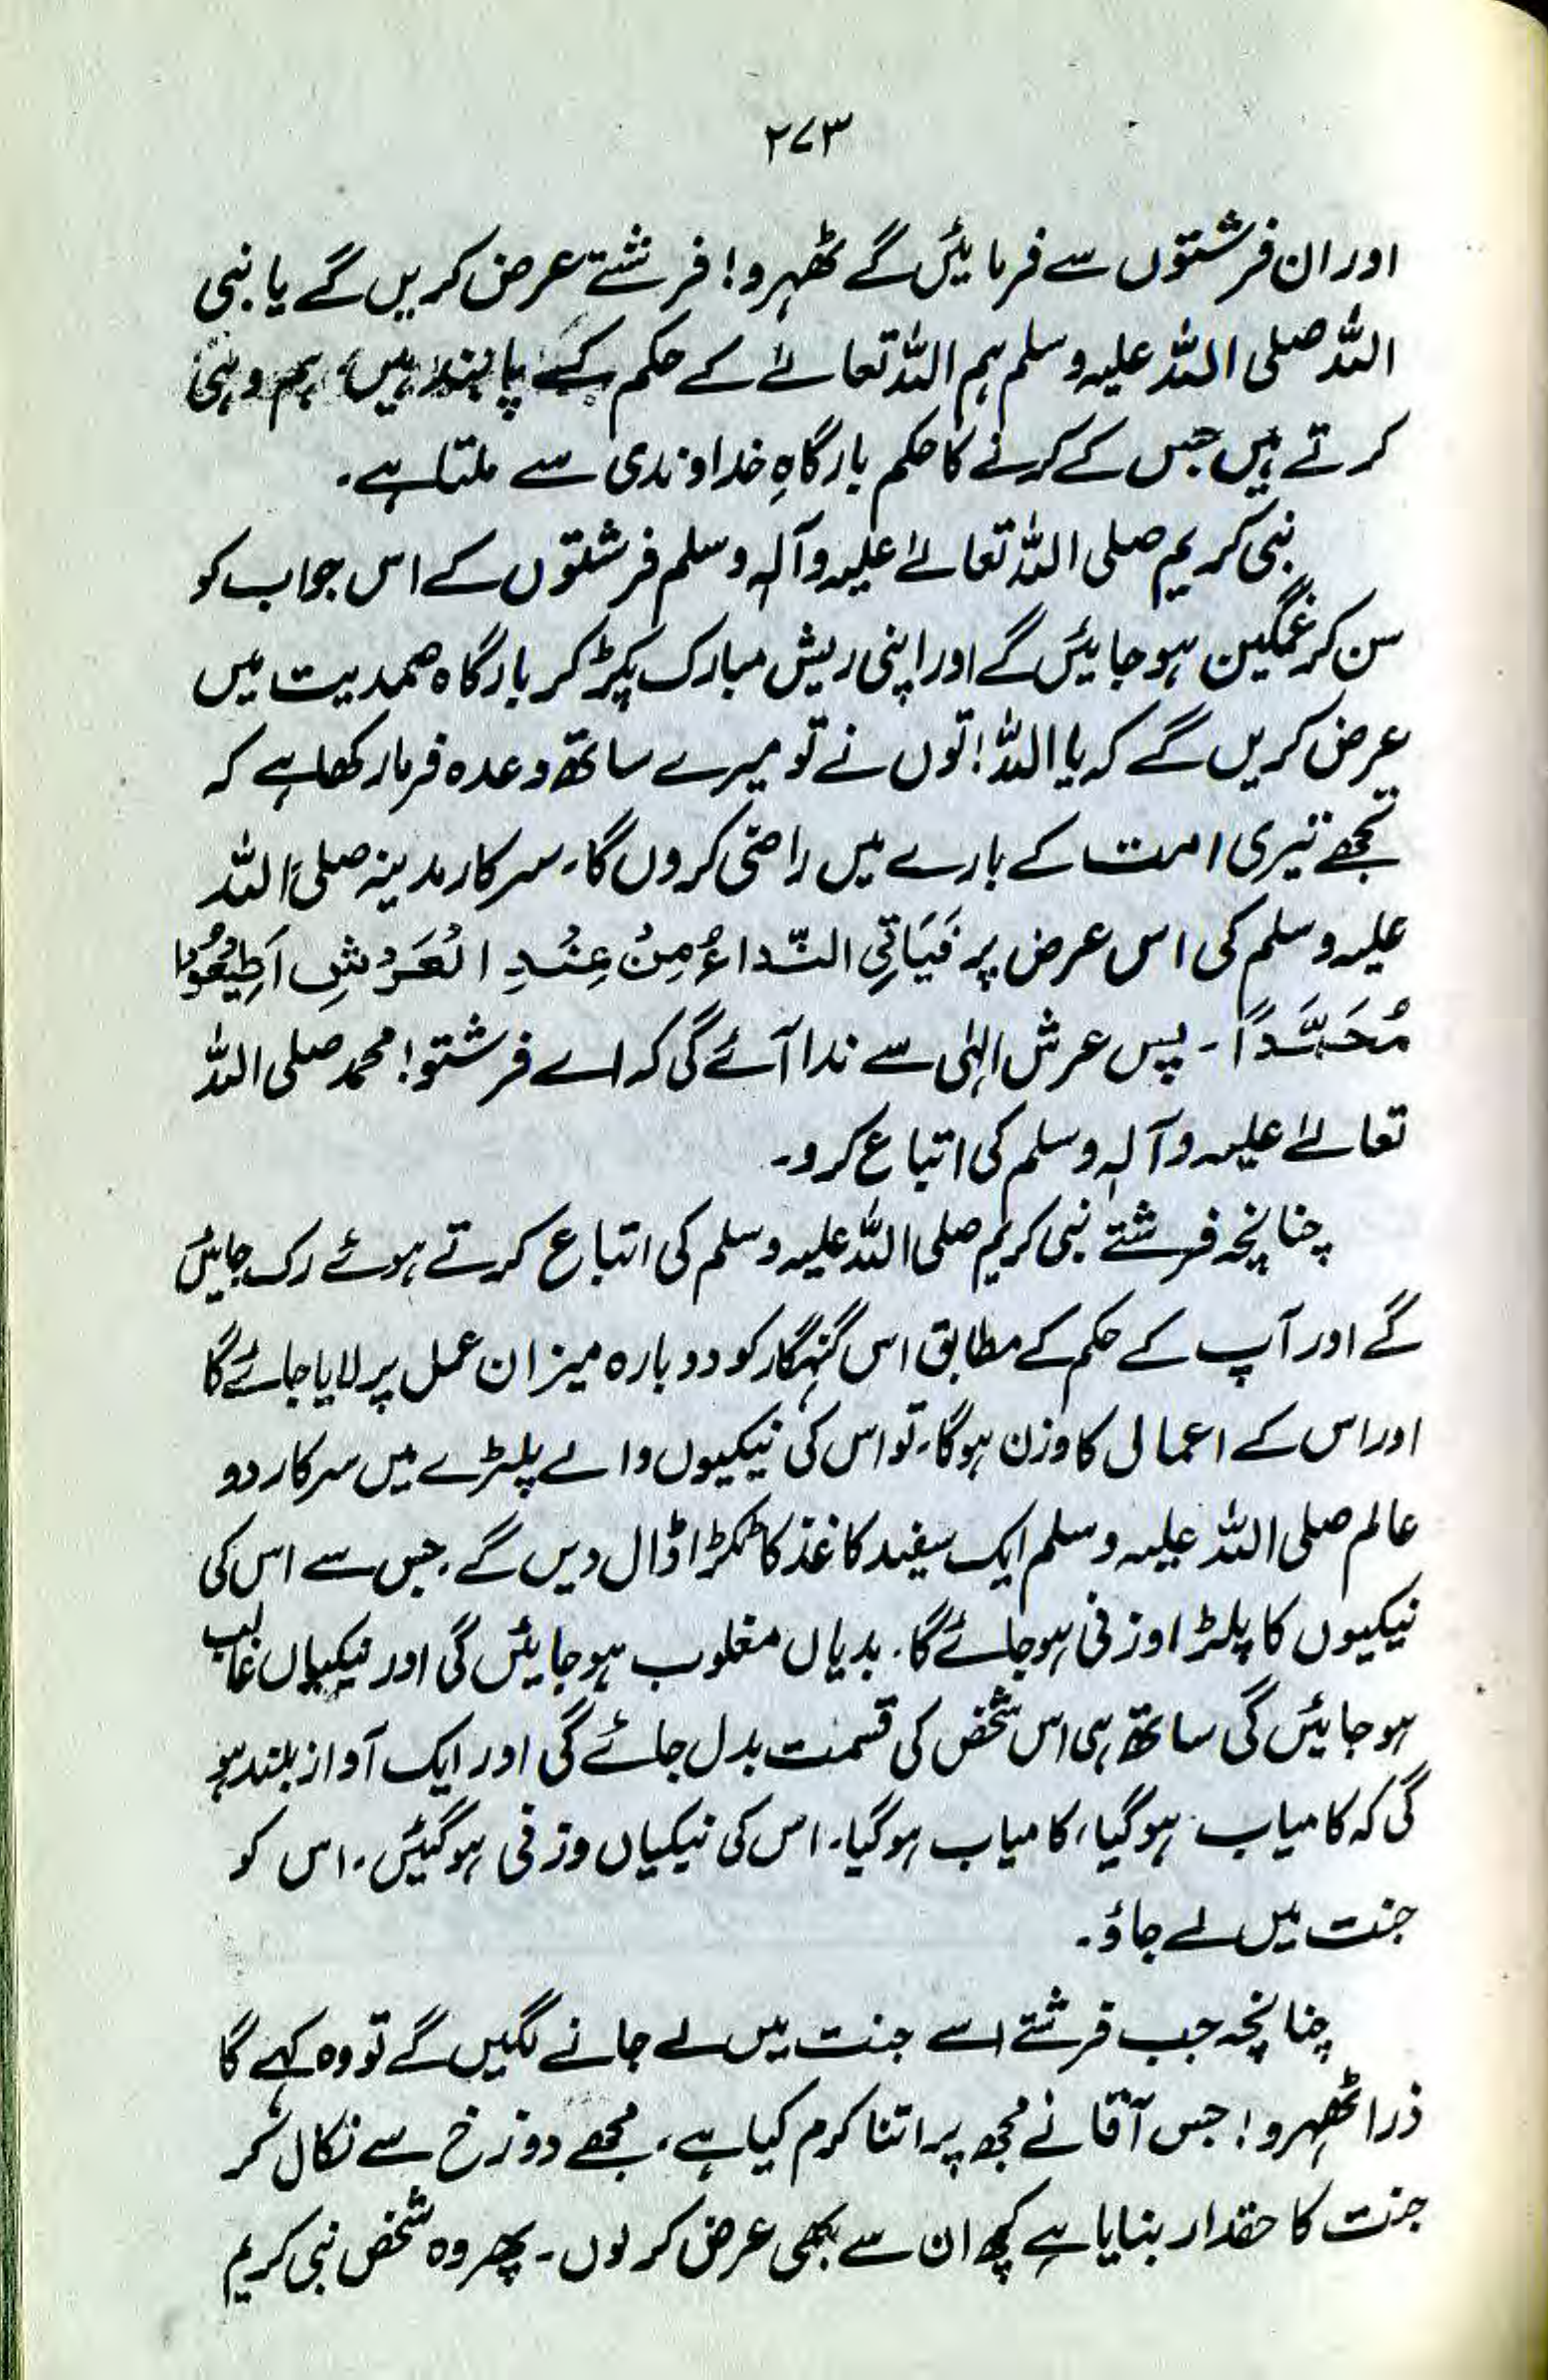 ۲۷۳
اور ان فرشتوں سے فرمائیں گے ٹھہرو! فرشتے عرض کریں گے یا نبی
اللہ صلی اللہ علیہ وسلم ہم اللہ تعالےٰ کے حکم کے پابند ہیں، ہم وہی
کرتے ہیں جس کے کرنے کا حکم بارگاہِ خداوندی سے ملتا ہے۔
نبی کریم صلی اللہ تعالےٰ علیہ وآلہٖ وسلم فرشتوں کے اس جواب کو
سن کر غمگین ہو جائیں گے اور اپنی ریش مبارک پکڑ کر بارگاہ صمدیت میں
عرض کریں گے کہ یا اللہ! توں نے تو میرے ساتھ وعدہ فرما رکھا ہے کہ
تجھے تیری امت کے بارے میں راضی کروں گا۔ سرکار مدینہ صلی اللہ
علیہ وسلم کی اس عرض پر فَیَاتِی النِّدَاءُ مِنْ عِنْدِ الْعَرْشِ اَطِیْعُوْا
مُحَمَّدًا۔ پس عرش الہٰی سے ندا آئے گی کہ اے فرشتو! محمد صلی اللہ
تعالےٰ علیہ وآلہٖ وسلم کی اتباع کرو۔
چنانچہ فرشتے نبی کریم صلی اللہ علیہ وسلم کی اتباع کرتے ہوئے رک جائیں
گے اور آپ کے حکم کے مطابق اس گنہگار کو دوبارہ میزان عمل پر لایا جائے گا
اور اس کے اعمال کا وزن ہوگا۔ تو اس کی نیکیوں والے پلڑے میں سرکار دو
عالم صلی اللہ علیہ وسلم ایک سفید کاغذ کا ٹکڑا ڈال دیں گے۔ جس سے اس کی
نیکیوں کا پلڑا وزنی ہو جائے گا۔ بدیاں مغلوب ہو جائیں گی اور نیکیاں غالب
ہو جائیں گی ساتھ ہی اس شخص کی قسمت بدل جائے گی اور ایک آواز بلند ہو
گی کہ کامیاب ہوگیا، کامیاب ہوگیا۔ اس کی نیکیاں وزنی ہوگئیں۔ اس کو
جنت میں لے جاؤ۔
چنانچہ جب فرشتے اسے جنت میں لے جانے لگیں گے تو وہ کہے گا
ذرا ٹھہرو! جس آقا نے مجھ پر اتنا کرم کیا ہے، مجھے دوزخ سے نکال کر
جنت کا حقدار بنایا ہے کچھ ان سے بھی عرض کر لوں۔ پھر وہ شخص نبی کریم